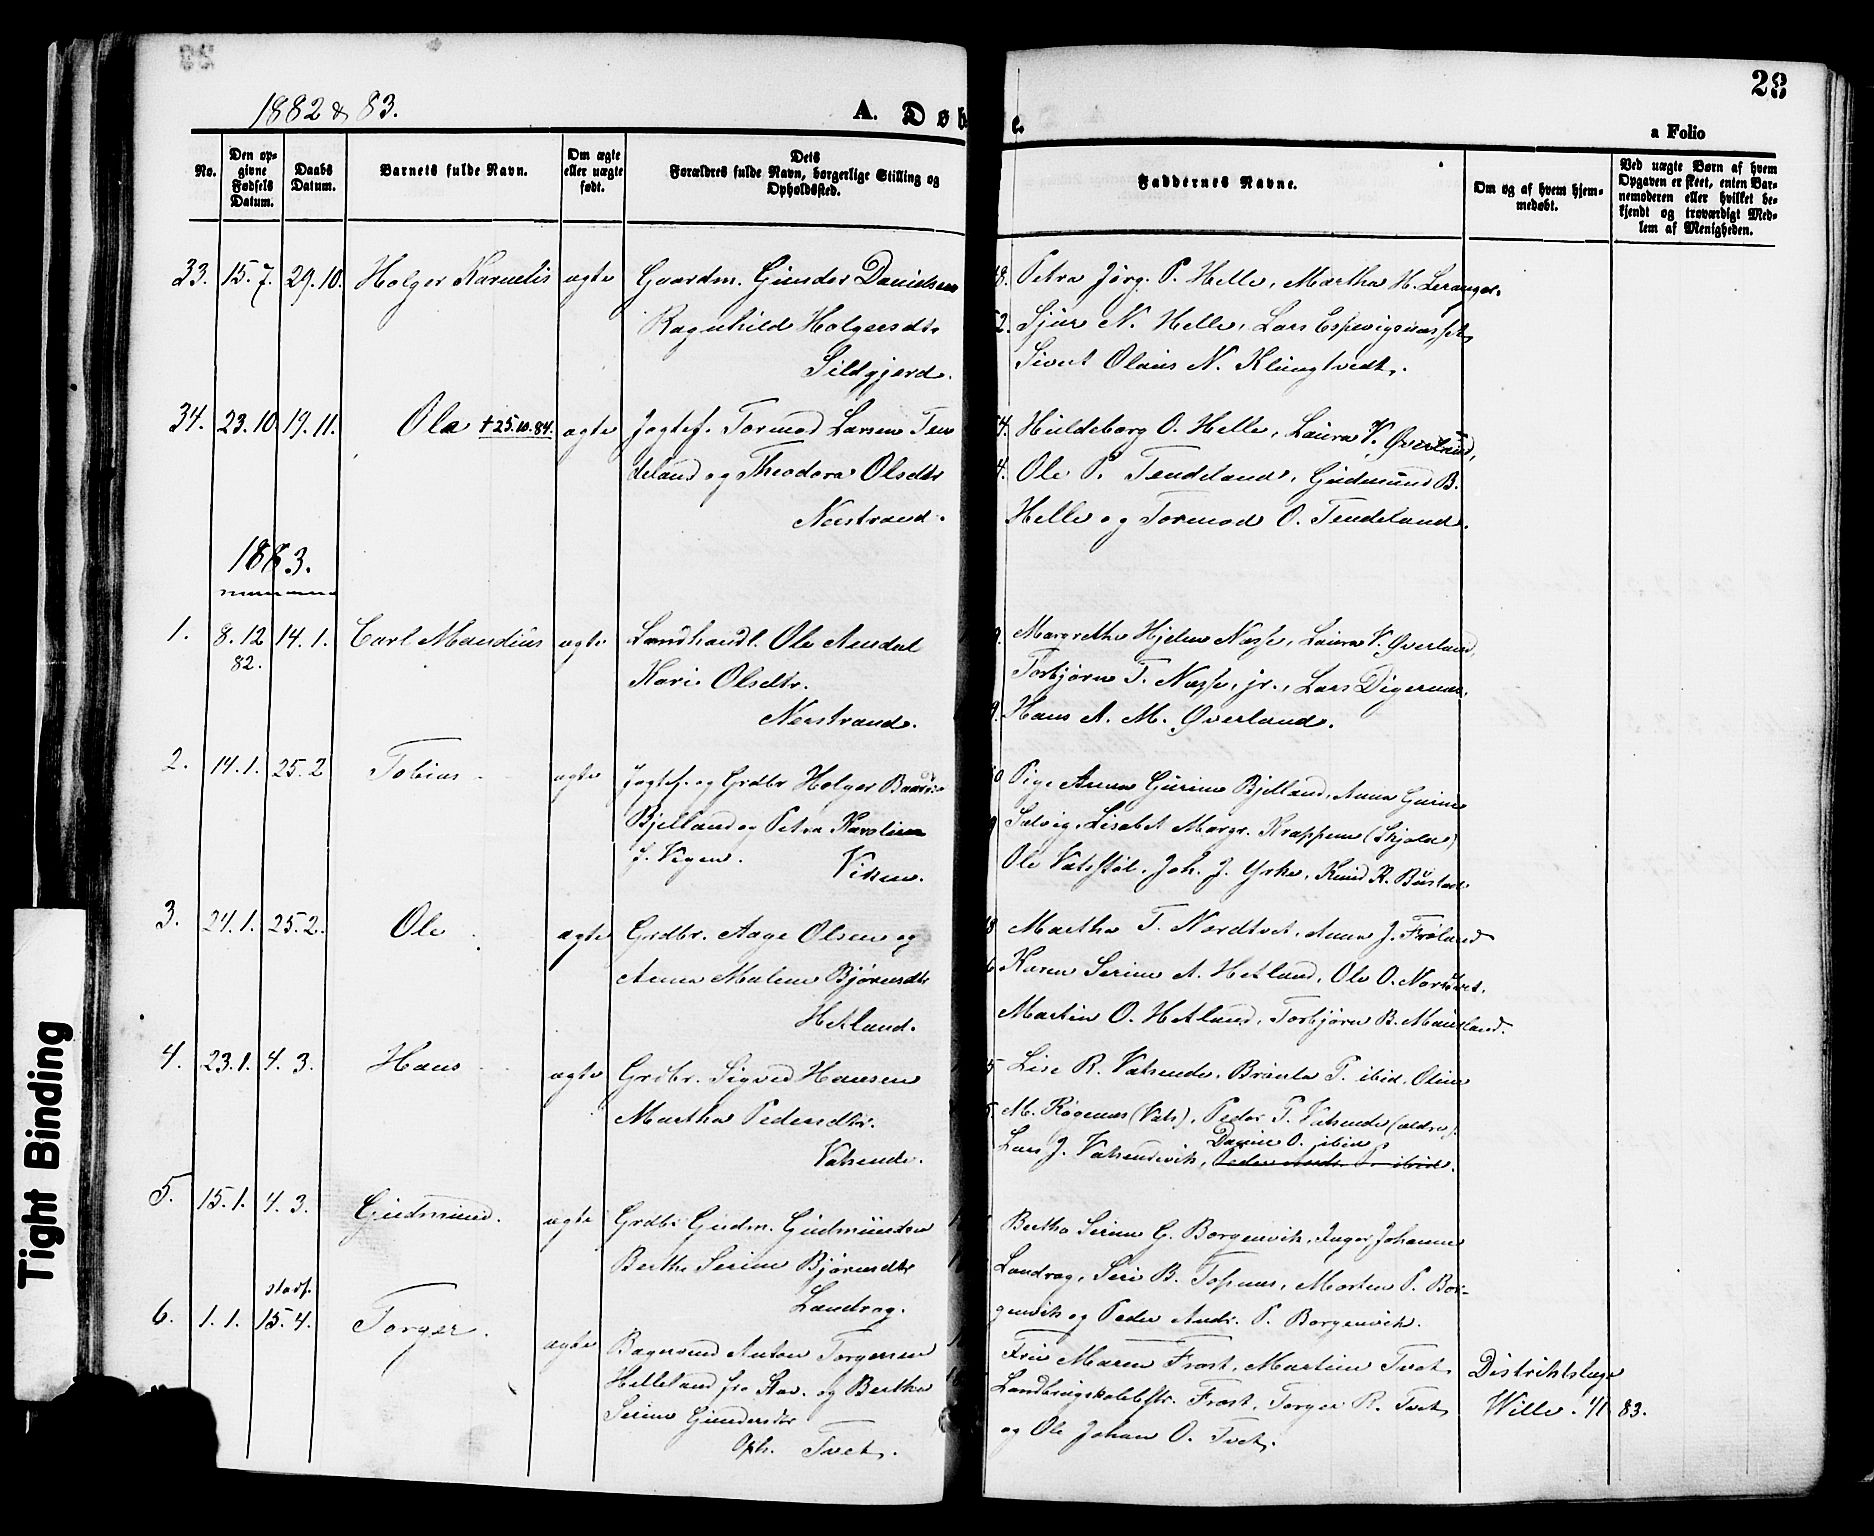 28
1882 & 83.
A. Døb
e.
a Folio
No.
Den op-
givne
Fødsels
Datum.
Daabs
Datum.
Barnets fulde Navn.
Om ægte
eller uægte
født.
Dets
Forældres fulde Navn, borgerlige Stilling og
Opholdssted.
Faddernes Navne.
Om og af hvem hjem-
medøbt.
Ved uægte Børn af hvem
Opgaven er skeet, enten Bar-
nemoderen eller hvilket be-
kjendt og troværdigt Med-
lem af Menigheden.
33. 15. 7. 29. 10. Holger Kornelis ægte Gaardm. Gunder Danielsen
Ragnhild Holgersdtr
Sildgjerd.
8. Petra Jørg. P. Helle, Martha H. Leranger.
2. Sjur N. Helle, Lars Espevigsnæsset,
Sivert Olaus N. Klungtvedt.
34. 23. 10 19. 11. Ola +25.10.84. ægte Jagtef. Tormod Larsen Ten
deland og Theodora Olsdtr
Nerstrand.
4. Huldeborg O. Helle, Laura V. Øverland,
4. Ole P. Tendeland, Gudmund B.
Helle og Tormod O. Tendeland.
1883.
1. 8. 12 82. 14. 1. Carl Maudius ægte Landhandl. Ole Aandal
Kari Olsdtr.
Nerstrand.
9. Margrethe Hjelm Næsse, Laura V. Øverland,
Torbjørn T. Næsse, jr., Lars Digernæs,
9. Hans A. M. Øverland.
2. 14. 1. 25. 2 Tobias ægte Jagtef. og Grdbr Holger
Bjelland og Petra Karoline
J. Vigen. Viken.
Pige Anna Gurine Bjelland, Anna Gurine
Salvig, Lisabet Margr. Krappene (Skjolee)
Ole Vatsstøl, Joh. J. Yrke, Knud K. Bustad.
3. 24. 1. 25. 2. Ole ægte Grdbr. Aage Olsen og
Anna Malene Bjørnsdtr
Hetland.
Martha T. Nordtvet, Anna J. Frøland
6 Karen Serine A. Hetland, Ole O. Nordtvet.
Martin O. Hetland, Torbjørn B. Mausland.
4. 23. 1. 4. 3. Hans ægte Grdbr. Sigved Hansen
Martha Pedersdtr.
Vatsende.
5 Lise R. Vatsende, Brønla T. ibid. Oline
M. Røgenæs (Vats), Peder T. Vatsende (ældre).
Davine O. ibid
Lars J. Vatsendevik, Peder Andr. P. ibid.
5. 15. 1. 4. 3. Gudmund. ægte Grdbr Gudm. Gudmundsen
Berthe Serine Bjørnsdtr
Landrag.
Bertha Serine G. Borgenvik, Inger Johanne
Landrag, Seri B. Topnæs, Morten P. Bor-
genvik og Peder Andr. P. Borgenvik.
stadf.
6. 1. 1. 15. 4. Torger. ægte Bagersvend Anton Torgersen
Helleland fra Stav. og Berthe
Serine Gundersdtr
Oph. Tvet.
Fru Maren Frost, Martine Tvet,
Landbrugsskolebstr. Frost, Torger R. Tvet,
og Ole Johan O. Tvet.
Distriktslæge
Wille. 4/1 83.
Tight Binding